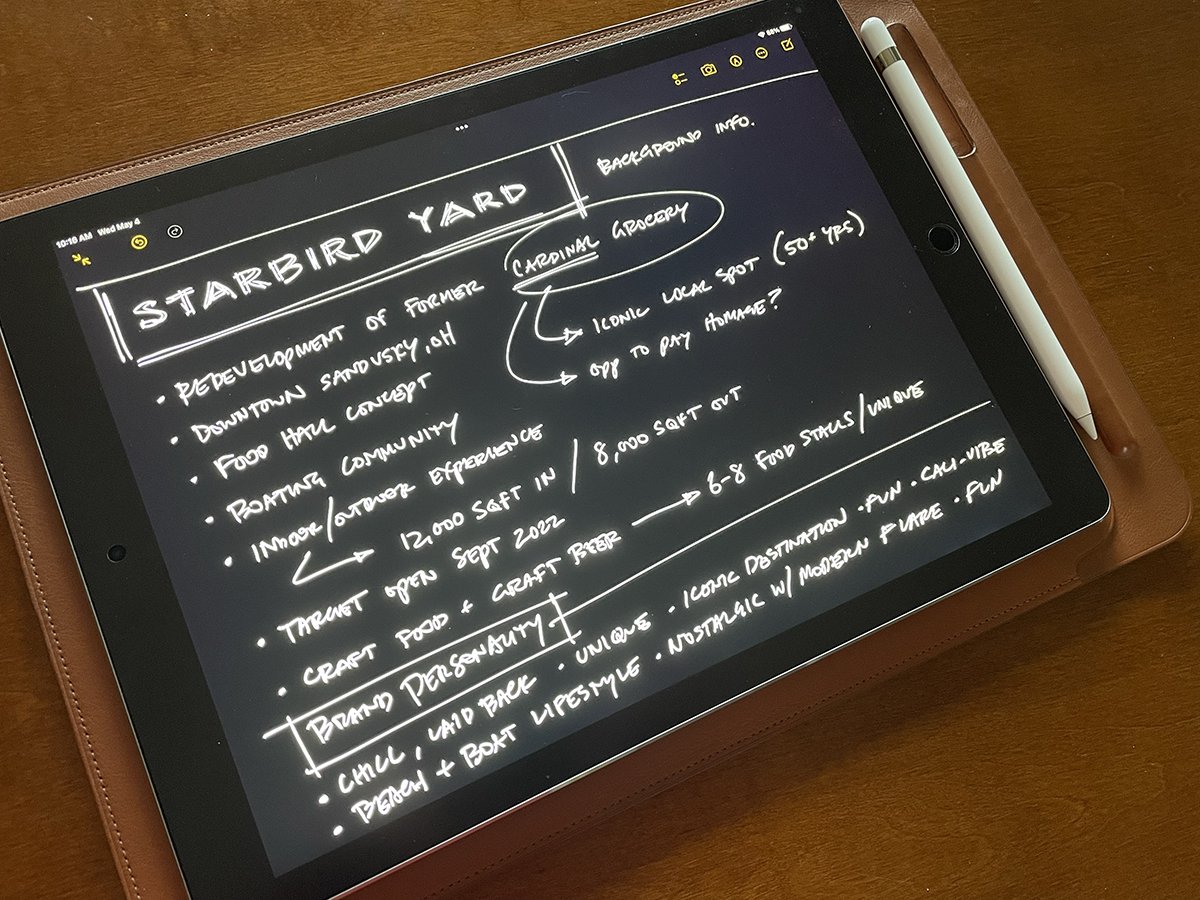 10:10 AM Wed May 4
88%
STARBIRD YARD
BACKGROUND INFO.
• REDEVELOPMENT OF FORMER CARDINAL GROCERY
→ ICONIC LOCAL SPOT (50+ YRS)
→ OPP TO PAY HOMAGE?
• DOWNTOWN SANDUSKY, OH
• FOOD HALL CONCEPT
• BOATING COMMUNITY
• INDOOR/OUTDOOR EXPERIENCE
→ 12,000 SQFT IN / 8,000 SQFT OUT
• TARGET OPEN SEPT 2022
• CRAFT FOOD + CRAFT BEER → 6-8 FOOD STALLS/UNIQUE
BRAND PERSONALITY
• CHILL, LAID BACK • UNIQUE • ICONIC DESTINATION • FUN • CALI-VIBE
• BEACH + BOAT LIFESTYLE • NOSTALGIC W/ MODERN FLARE • FUN